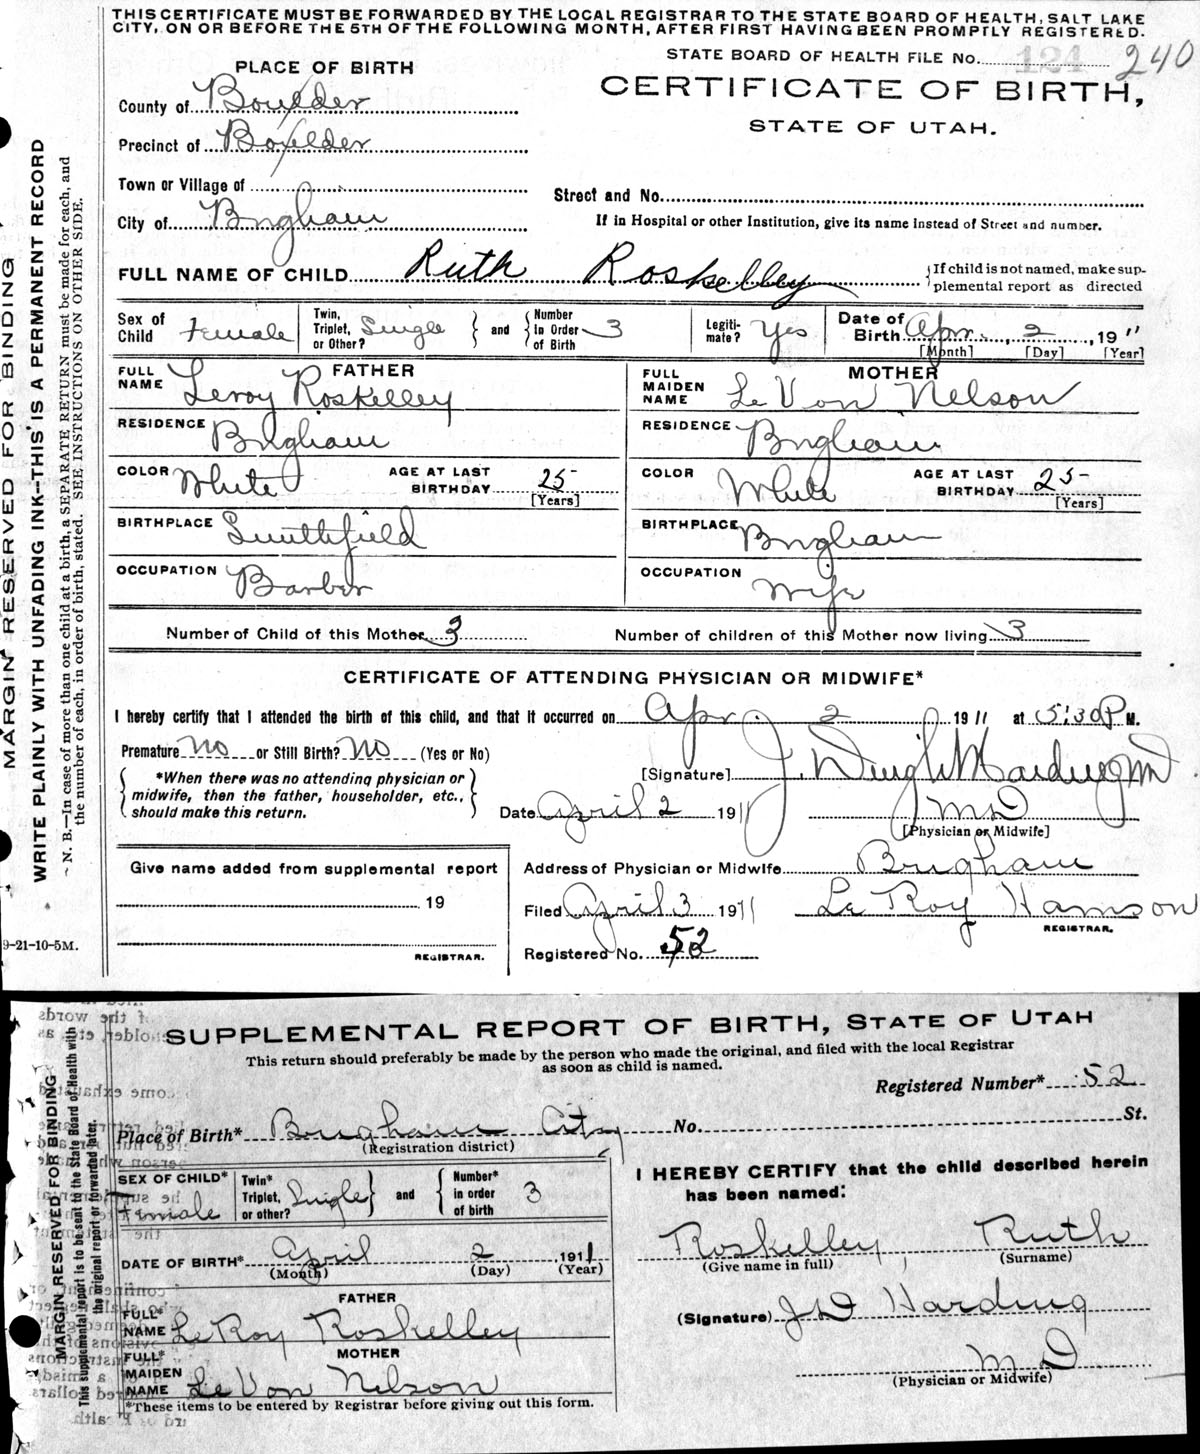 THIS CERTIFICATE MUST BE FORWARDED BY THE LOCAL REGISTRAR TO THE STATE BOARD OF HEALTH, SALT LAKE
CITY, ON OR BEFORE THE 5TH OF THE FOLLOWING MONTH, AFTER FIRST HAVING BEEN PROMPTLY REGISTERED.
STATE BOARD OF HEALTH FILE No. 124 240
PLACE OF BIRTH
CERTIFICATE OF BIRTH,
STATE OF UTAH.
County of Boxelder
Precinct of Boxelder
Town or Village of
Street and No.
City of Brigham
If in Hospital or other Institution, give its name instead of Street and number.
FULL NAME OF CHILD Ruth Roskelley
{If child is not named, make sup-
plemental report as directed
Sex of Child Female
Twin, Triplet, or Other? Single } and { Number in Order of Birth 3
Legiti-mate? Yes
Date of Birth Apr. 2, 1911
[Month] [Day] [Year]
FATHER
FULL NAME Leroy Roskelley
RESIDENCE Brigham
COLOR White AGE AT LAST BIRTHDAY 25 [Years]
BIRTHPLACE Smithfield
OCCUPATION Barber
MOTHER
FULL MAIDEN NAME Le Von Nelson
RESIDENCE Brigham
COLOR White AGE AT LAST BIRTHDAY 25 [Years]
BIRTHPLACE Brigham
OCCUPATION Wife
Number of Child of this Mother 3 Number of children of this Mother now living 3
CERTIFICATE OF ATTENDING PHYSICIAN OR MIDWIFE*
I hereby certify that I attended the birth of this child, and that it occurred on Apr. 2 1911 at 5:30 P M.
Premature No or Still Birth? No (Yes or No)
{ *When there was no attending physician or
midwife, then the father, householder, etc.,
should make this return. }
[Signature] J. Dwight Harding MD
Date April 2 1911 MD
[Physician or Midwife]
Give name added from supplemental report
19
REGISTRAR.
Address of Physician or Midwife Brigham
Filed April 3 1911 Le Roy Hamson
REGISTRAR.
Registered No. 52
MARGIN RESERVED FOR BINDING
WRITE PLAINLY WITH UNFADING INK--THIS IS A PERMANENT RECORD
N. B.—In case of more than one child at a birth, a SEPARATE RETURN must be made for each, and
the number of each, in order of birth, stated. SEE INSTRUCTIONS ON OTHER SIDE.
9-21-10-5M.
SUPPLEMENTAL REPORT OF BIRTH, STATE OF UTAH
This return should preferably be made by the person who made the original, and filed with the local Registrar
as soon as child is named.
Registered Number* 52
Place of Birth* Brigham City No. St.
(Registration district)
SEX OF CHILD* Female
Twin* Triplet, or other? Single } and { Number* in order of birth 3
DATE OF BIRTH* April 2 1911
(Month) (Day) (Year)
FATHER
FULL* NAME Le Roy Roskelley
MOTHER
FULL* MAIDEN NAME Le Von Nelson
*These items to be entered by Registrar before giving out this form.
I HEREBY CERTIFY that the child described herein
has been named:
Roskelley, Ruth
(Give name in full) (Surname)
(Signature) J D Harding
M D.
(Physician or Midwife)
MARGIN RESERVED FOR BINDING
This supplemental report is to be sent to the State Board of Health with
the original report or forwarded later.